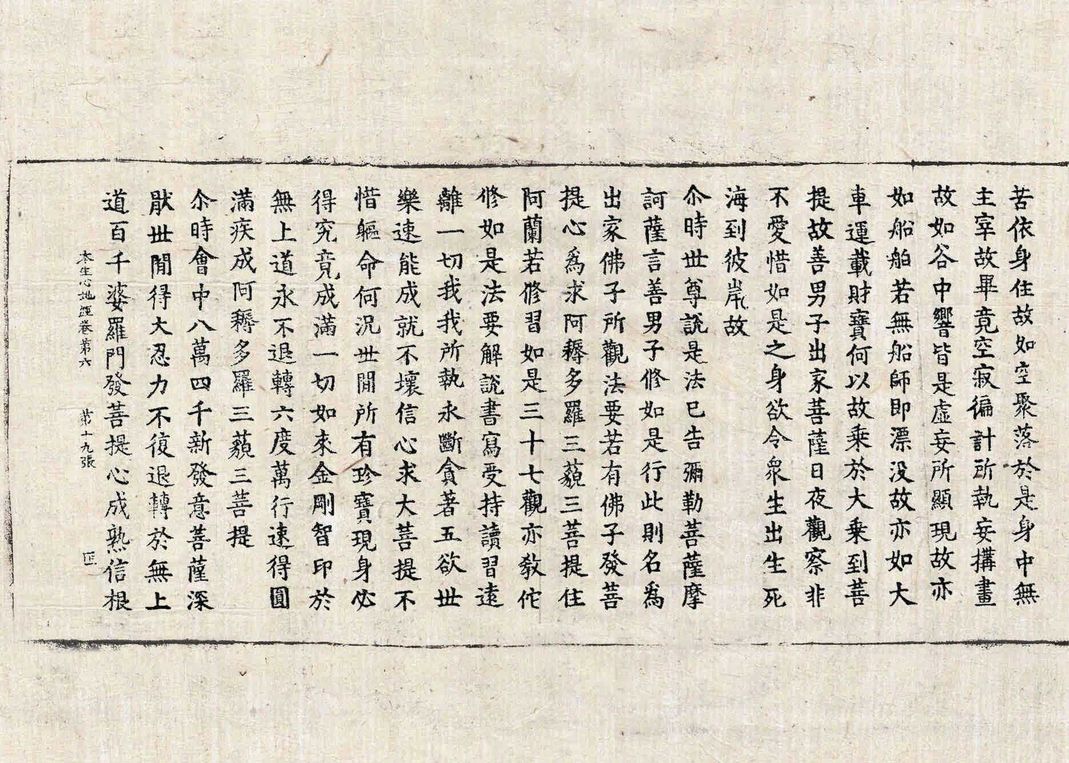 苦依身住故如空聚落於是身中無
主宰故畢竟空寂徧計所執妄搆畫
故如谷中響皆是虛妄所顯現故亦
如船舶若無船師即漂没故亦如大
車運載財寶何以故乘於大乘到菩
提故善男子出家菩薩日夜觀察非
不愛惜如是之身欲令衆生出生死
海到彼岸故
尒時世尊說是法已告彌勒菩薩摩
訶薩言善男子修如是行此則名爲
出家佛子所觀法要若有佛子發菩
提心爲求阿耨多羅三藐三菩提住
阿蘭若修習如是三十七觀亦教佗
修如是法要解說書寫受持讀習遠
離一切我我所執永斷貪著五欲世
樂速能成就不壞信心求大菩提不
惜軀命何況世閒所有珍寶現身必
得究竟成滿一切如來金剛智印於
無上道永不退轉六度萬行速得圓
滿疾成阿耨多羅三藐三菩提
尒時會中八萬四千新發意菩薩深
猒世閒得大忍力不復退轉於無上
道百千婆羅門發菩提心成熟信根
本生心地經卷第六 第十九張 匡